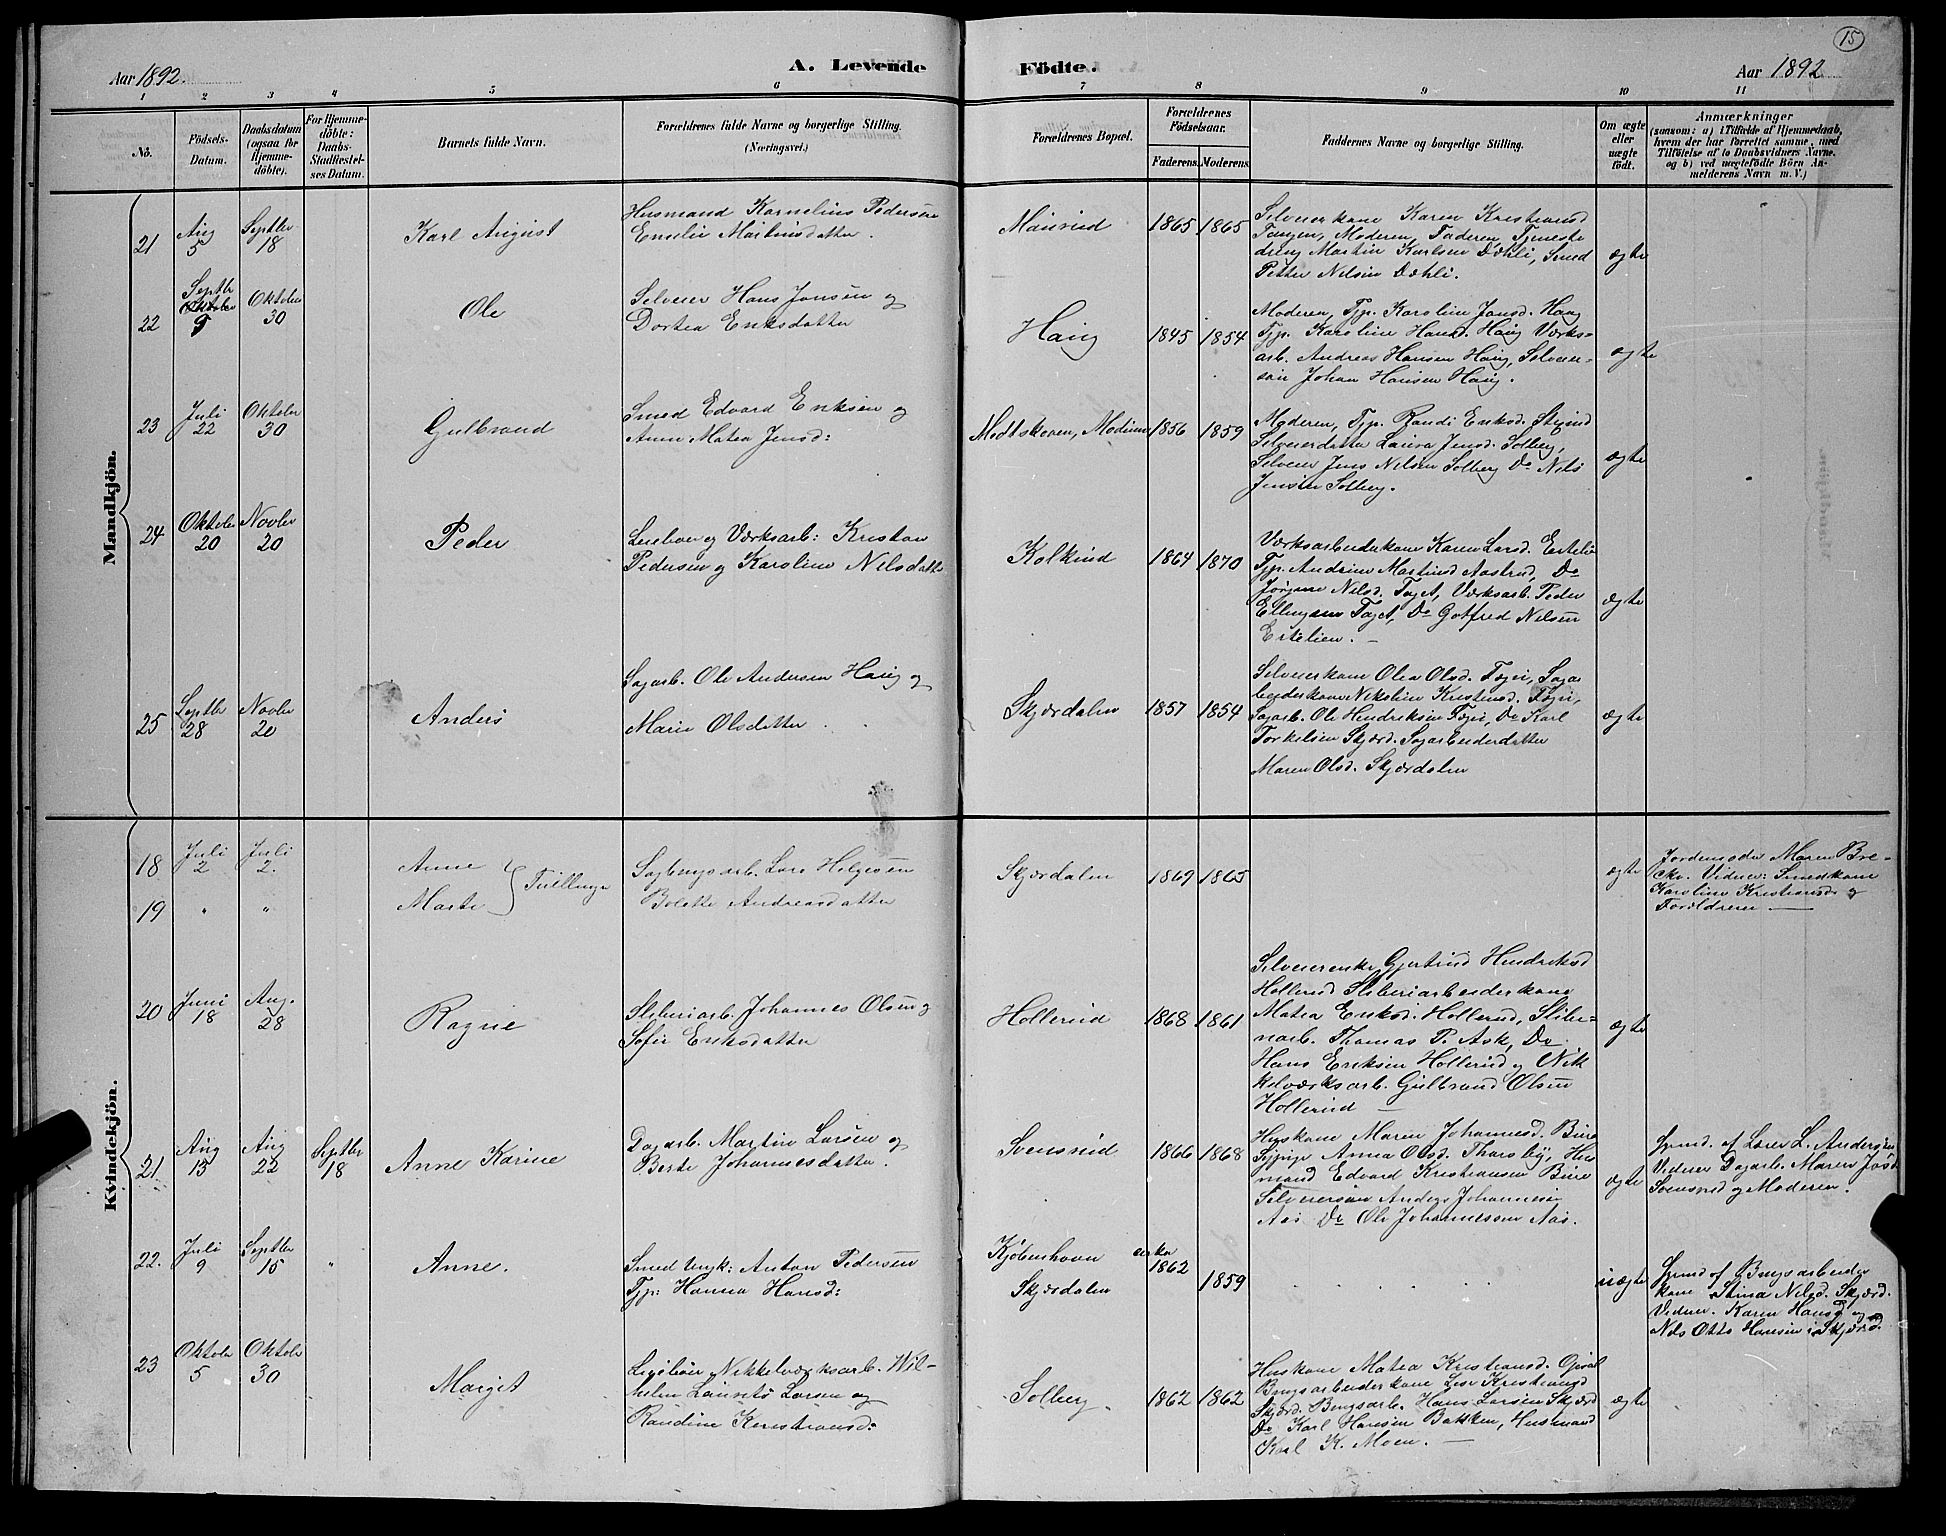 15
Aar 1892.
A. Levende
Födte.
Aar 1892
1 2 3 4 5 6 7 8 9 10 11
No.
Födsels-
Datum.
Daabsdatum
(ogsaa for
Hjemme-
döbte).
For Hjemme-
döbte:
Daabs-
Stadfæstel-
ses Datum.
Barnets fulde Navn.
Forældrenes fulde Navne og borgerlige Stilling.
(Næringsvei.)
Forældrenes Bopæl.
Forældrenes
Födselsaar.
Faderens.
Moderens.
Faddernes Navne og borgerlige Stilling.
Om ægte
eller
uægte
födt.
Anmærkninger
(saasom: a) i Tilfælde af Hjemmedaab,
hvem der har forrettet samme, med
Tilföielse af to Daabsvidners Navne,
og b) ved uægtefödte Börn An-
melderens Navn m. V.)
Mandkjön.
21
Aug
5
Septbr
18
Karl August
Husmand Kornelius Pedersen
Emilie Martinsdatter.
1865
1865
Selveierkone Karen Kristiansd
Tangen, Moderen, Faderen, Tjeneste
dreng Martin Karlsen Dæhli, Smed
Petter Nilsen Dæhli.
ægte
22
Septbr
Oktober
9
Oktober
30
Ole
Selveier Hans Jonsen og
Dortea Eriksdatter
Haug
1845
1854
Moderen, Typ. Karoline Jonsd. Haug
Typ. Karoline Hansd. Haug Værks-
arb. Andreas Hansen Haug, Selveier-
søn Johan Hansen Haug.
ægte
23
Juli
22
Oktober
30
Gulbrand
Smed Edvard Eriksen og
Anne Matea Jensd:
Modum
1856
1859
Moderen, Typ. Randi Eriksd.
Selveierdatter Laura Jensd. Solberg,
Selveier Jens Nilsen Solberg Do Nils
Jensen Solberg.
ægte
24
Oktober
20
Novbr
20
Peder
Leiebor og Værksarb: Kristian
Pedersen og Karoline Nilsdatter
1864
1870
Værksarbeiderkone Karen Larsd. Ertelie
Typ. Andrine Martinsd Aastrud, Do
Jørgine Nilsd. Taget, Værksarb. Peder
Ellingsen Taget, Do Gotfred Nilsen
Ertelien. —
ægte
25
Septbr
28
Novbr
20
Anders
Sagarb. Ole Andersen Haug og
Marie Olsdatter
Skjærdalen
1857
1854
Selveierkone Olea Olsd. Togn, Saga
beiderkone Nikoline Kristensd.
Sagarb. Ole Hendriksen Do Karl
Torkelsen Skjærd. Sagarbeiderdatter
Maren Olsd. Skjærdalen
ægte
Kvindekjön.
18
Juli
2
Juli
2.
Anne
19
"
"
Marte
Tvillinger
Sagbrugsarb. Lars Helgesen
Bolette Andreasdatter
Skjærdalen
1869
1865
ægte
Jordemoder Maren Bre-
cke. Vidner: Smedkone
Karoline Kristiansd. og
Forældrene —
20
Juni
18
Aug.
28
Ragne
Sliberiarb. Johannes Olsen og
Sofie Eriksdatter
Hollerud
1868
1861
Selveierenke Gjertrud Hendriksd
Hollerud Sliberiarbeiderkone
Matea Eriksd. Hollerud, Slibe-
riarb. Thomas P. Ask, Do
Hans Eriksen Hollerud og Nik
kelværksarb. Gulbrand Olsen
Hollerud —
ægte
21
Aug
13
Aug
22
Septbr
18
Anne Karine
Dagarb. Martin Larsen og
Berte Johannesdatter.
Svensrud
1866
1868
Huskone Maren Johannesd. Bure
Sypige Anna Olsd. Tharsby, Hus
mand Edvard Kristiansen Bure
Selveiersøn Anders Johannesen
Aas Do Ole Johannessen Aas.
ægte
hjmd. af Lærer L. Andersen
Vidner Dagarb. Maren Josd
Svensrud og Moderen.
22.
Juli
9
Septbr
15
"
Anne.
Smed Ungk: Anton Pedersen
Typ: Hanna Hansd:
Kjøbenhavn
Skjærdalen
cirka
1862
1859
uægte
hjmd af Brugsarbeider
kone Stina Nilsd. Skjærd.
Vidner. Karen Hansd og
Nils Otto Hansen i Skjærd.
23
Oktober
5
Oktober
30
Margit
Nikkelværksarb. Wil-
helm Laurits Larsen og
Randine Kristiansd:
Solberg.
1862
1862
Huskone Matea Kristiansd. Opsal
Brugsarbeiderkone Lise Kristiansd
Skjærd. Brugsarb. Hans Larsen Skjærd
Do Karl Hansen Bakken, Husmand
Karl K. Moen. —
ægte